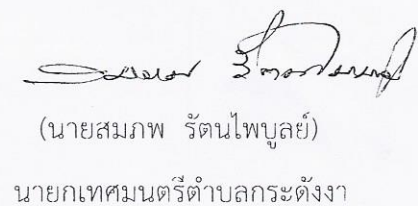 (นายสมภพ รัตนไพบูลย์)
นายกเทศมนตรีตำบลกระดังงา